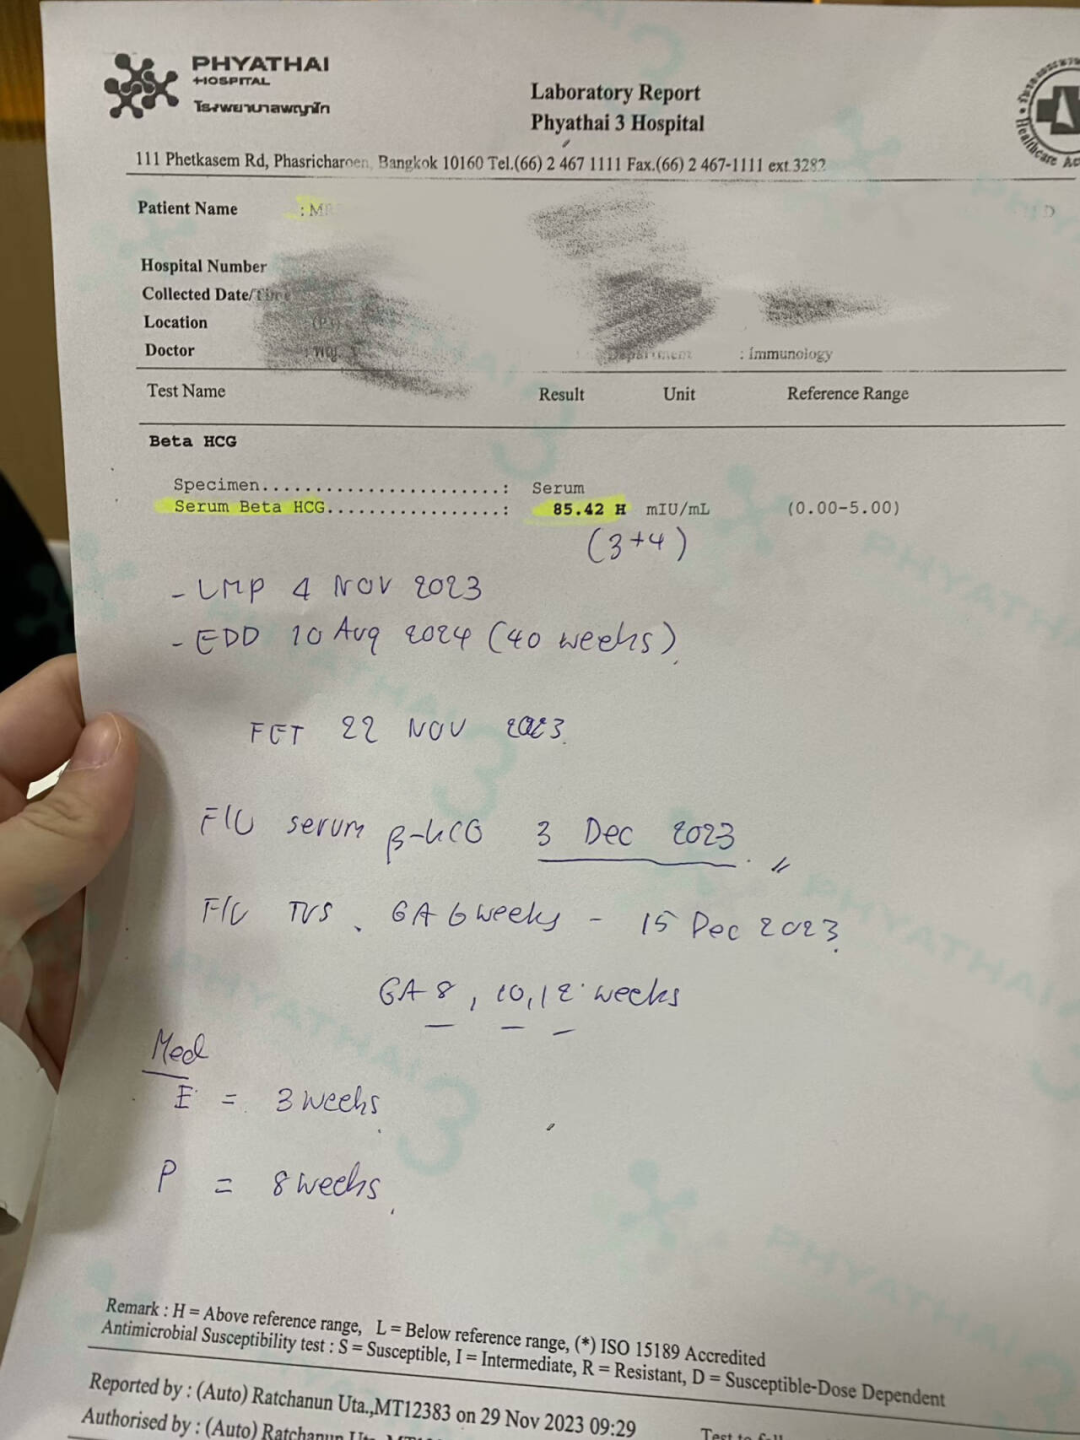 PHYATHAI
HOSPITAL
โรงพยาบาลพญาไท
Laboratory Report
Phyathai 3 Hospital
111 Phetkasem Rd, Phasricharoen, Bangkok 10160 Tel.(66) 2 467 1111 Fax.(66) 2 467-1111 ext.3282
Patient Name
Hospital Number
Collected Date/Time
Location
Doctor : พญ. Department : Immunology
Test Name Result Unit Reference Range
Beta HCG
Specimen......................: Serum
Serum Beta HCG.................: 85.42 H mIU/mL (0.00-5.00)
(3+4)
- LMP 4 NOV 2023
- EDD 10 Aug 2024 (40 weeks)
FET 22 NOV 2023.
F/U serum β-hCG 3 Dec 2023.
F/U TVS. GA 6 weeks - 15 Dec 2023.
GA 8, 10, 12 weeks
Med
E = 3 weeks.
P = 8 weeks.
Remark : H = Above reference range, L = Below reference range, (*) ISO 15189 Accredited
Antimicrobial Susceptibility test : S = Susceptible, I = Intermediate, R = Resistant, D = Susceptible-Dose Dependent
Reported by : (Auto) Ratchanun Uta.,MT12383 on 29 Nov 2023 09:29
Authorised by : (Auto) Ratchanun